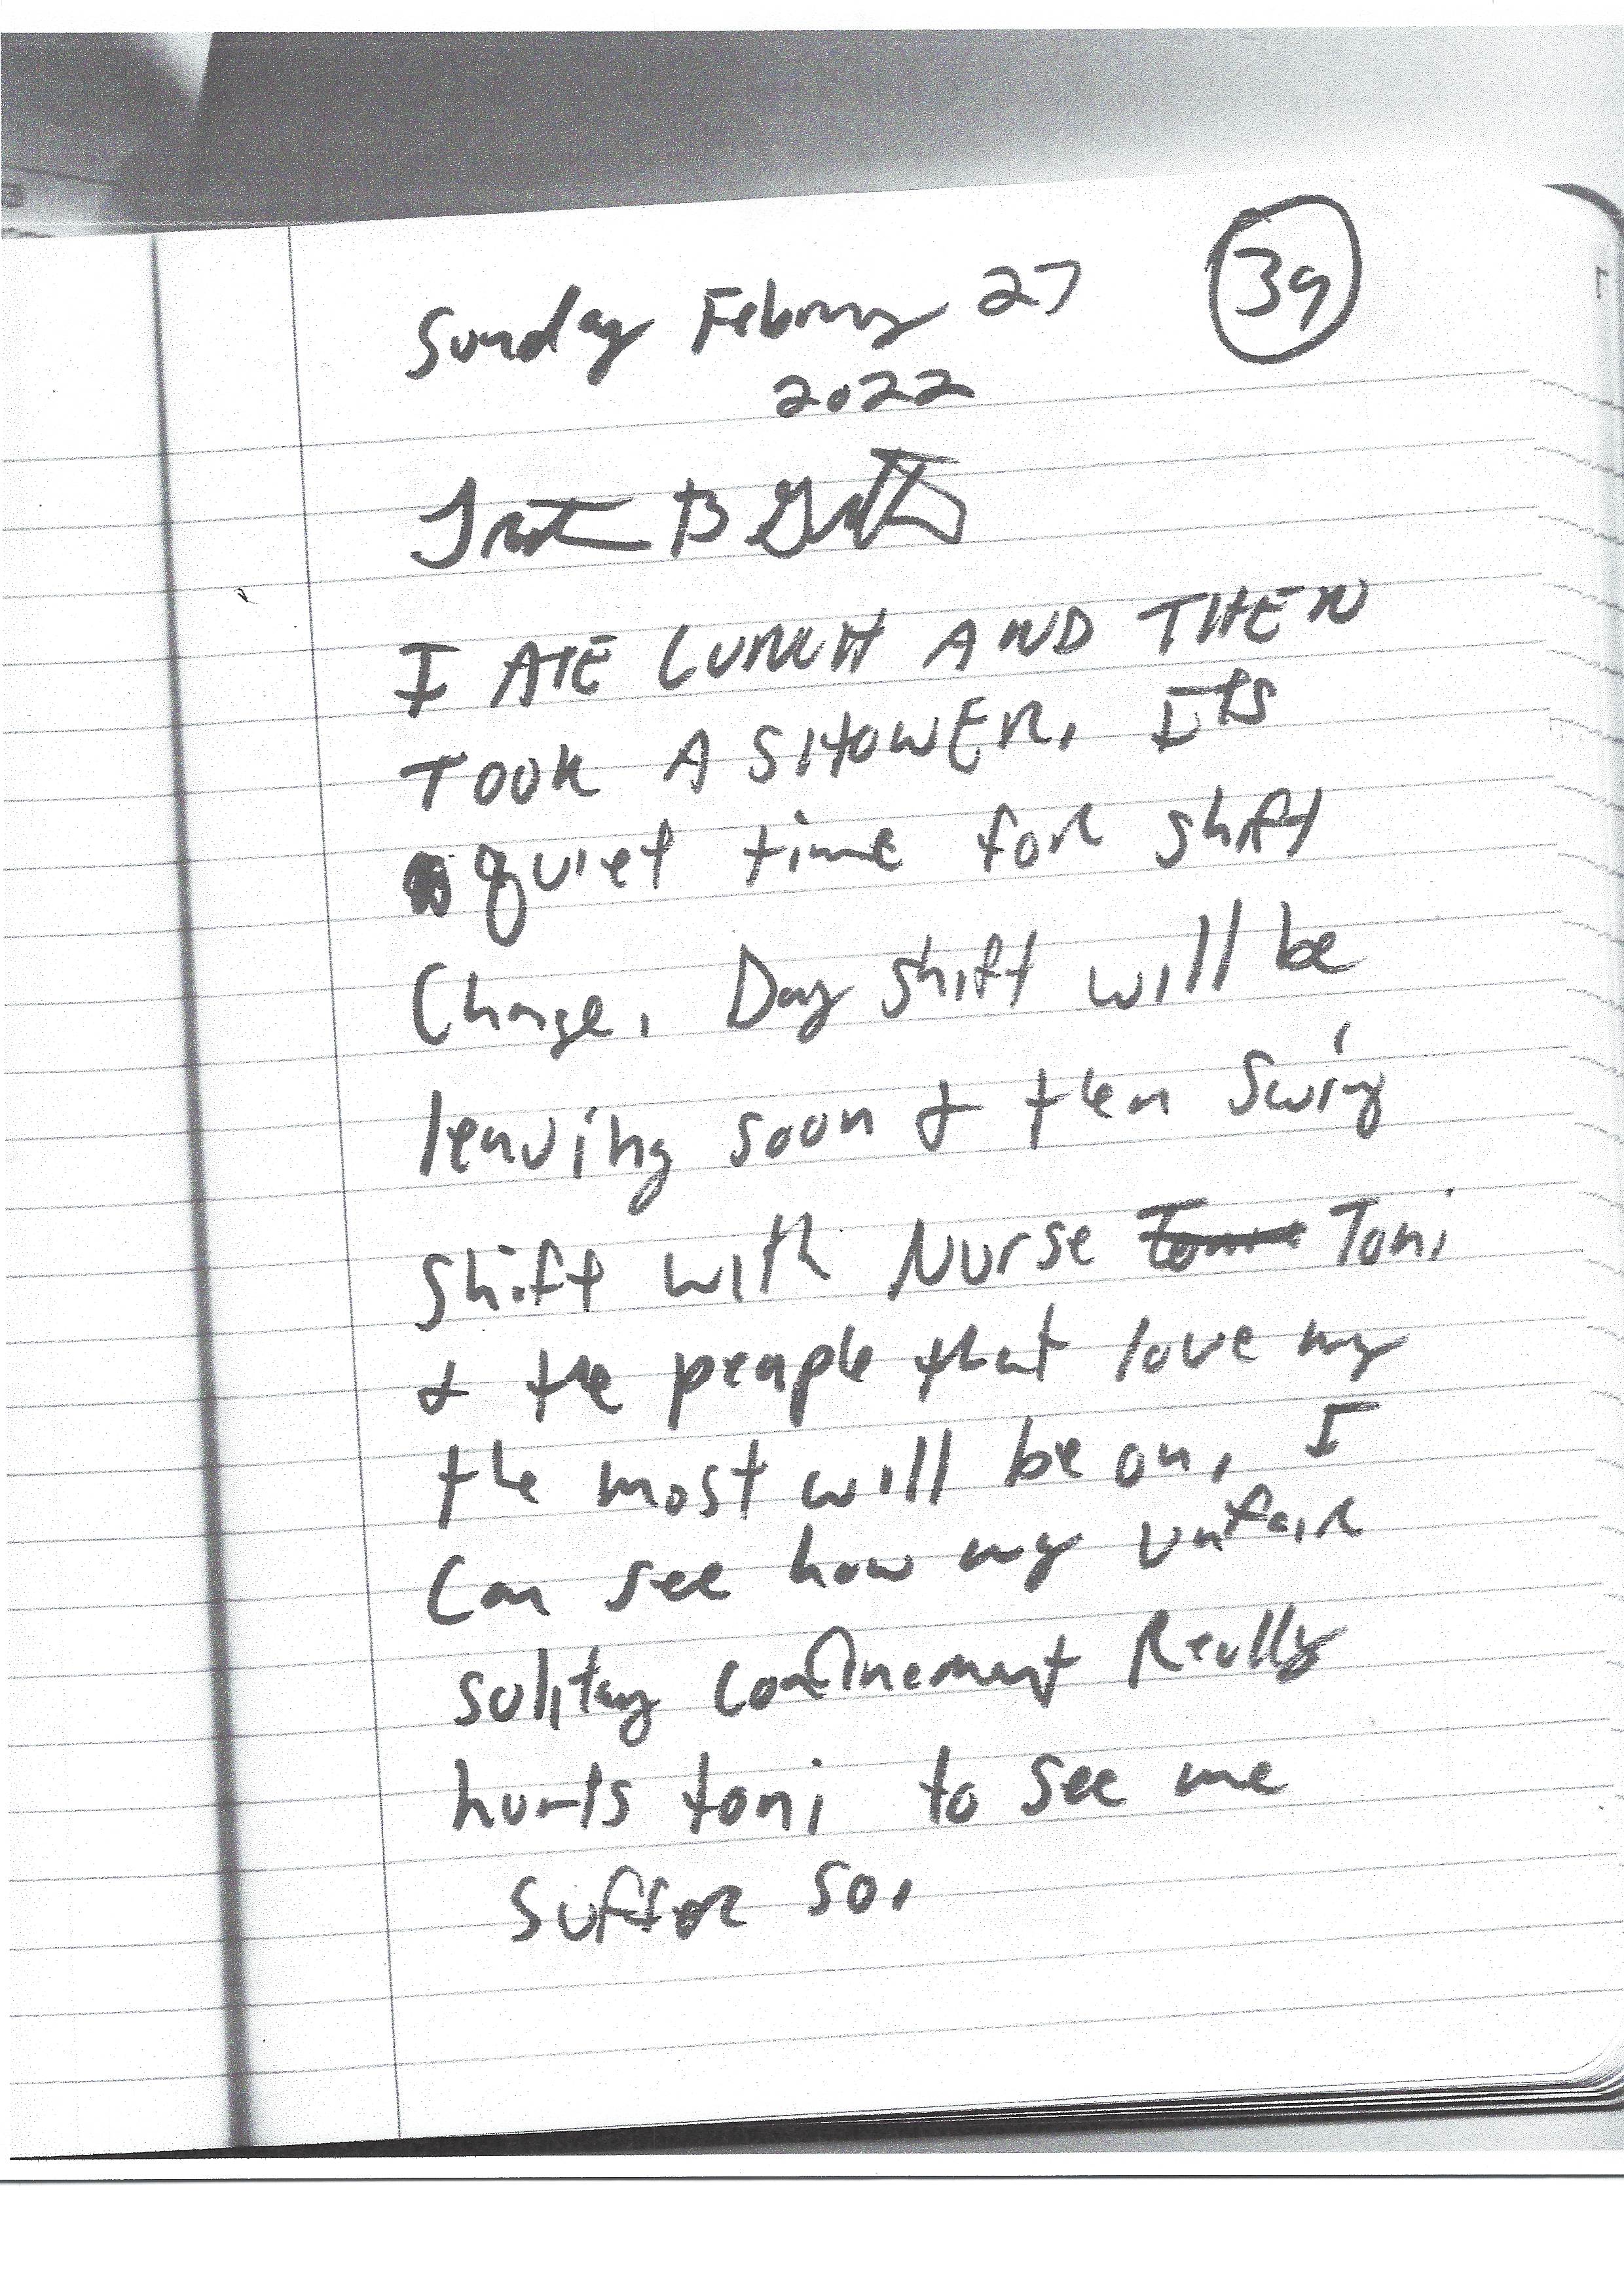 Sunday February 27 39
2022
B
I ATE LUNCH AND THEN
TOOK A SHOWER, Its
quiet time for shift
Change. Day shift will be
leaving soon & then swing
shift with Nurse Toni
& the people that love my
the most will be on, I
Can see how my unfair
solitay confinement Really
hurts toni to see me
suffer so,